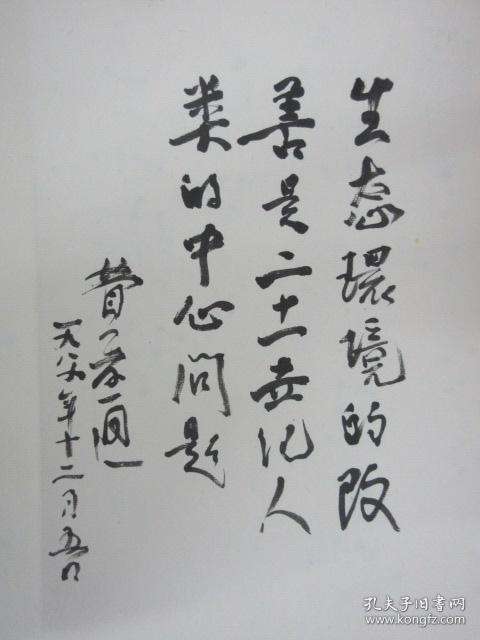 生态環境的改
善是二十一世纪人
类的中心问题
费孝通
一九八六年十二月五日
孔夫子旧书网
www.kongfz.com